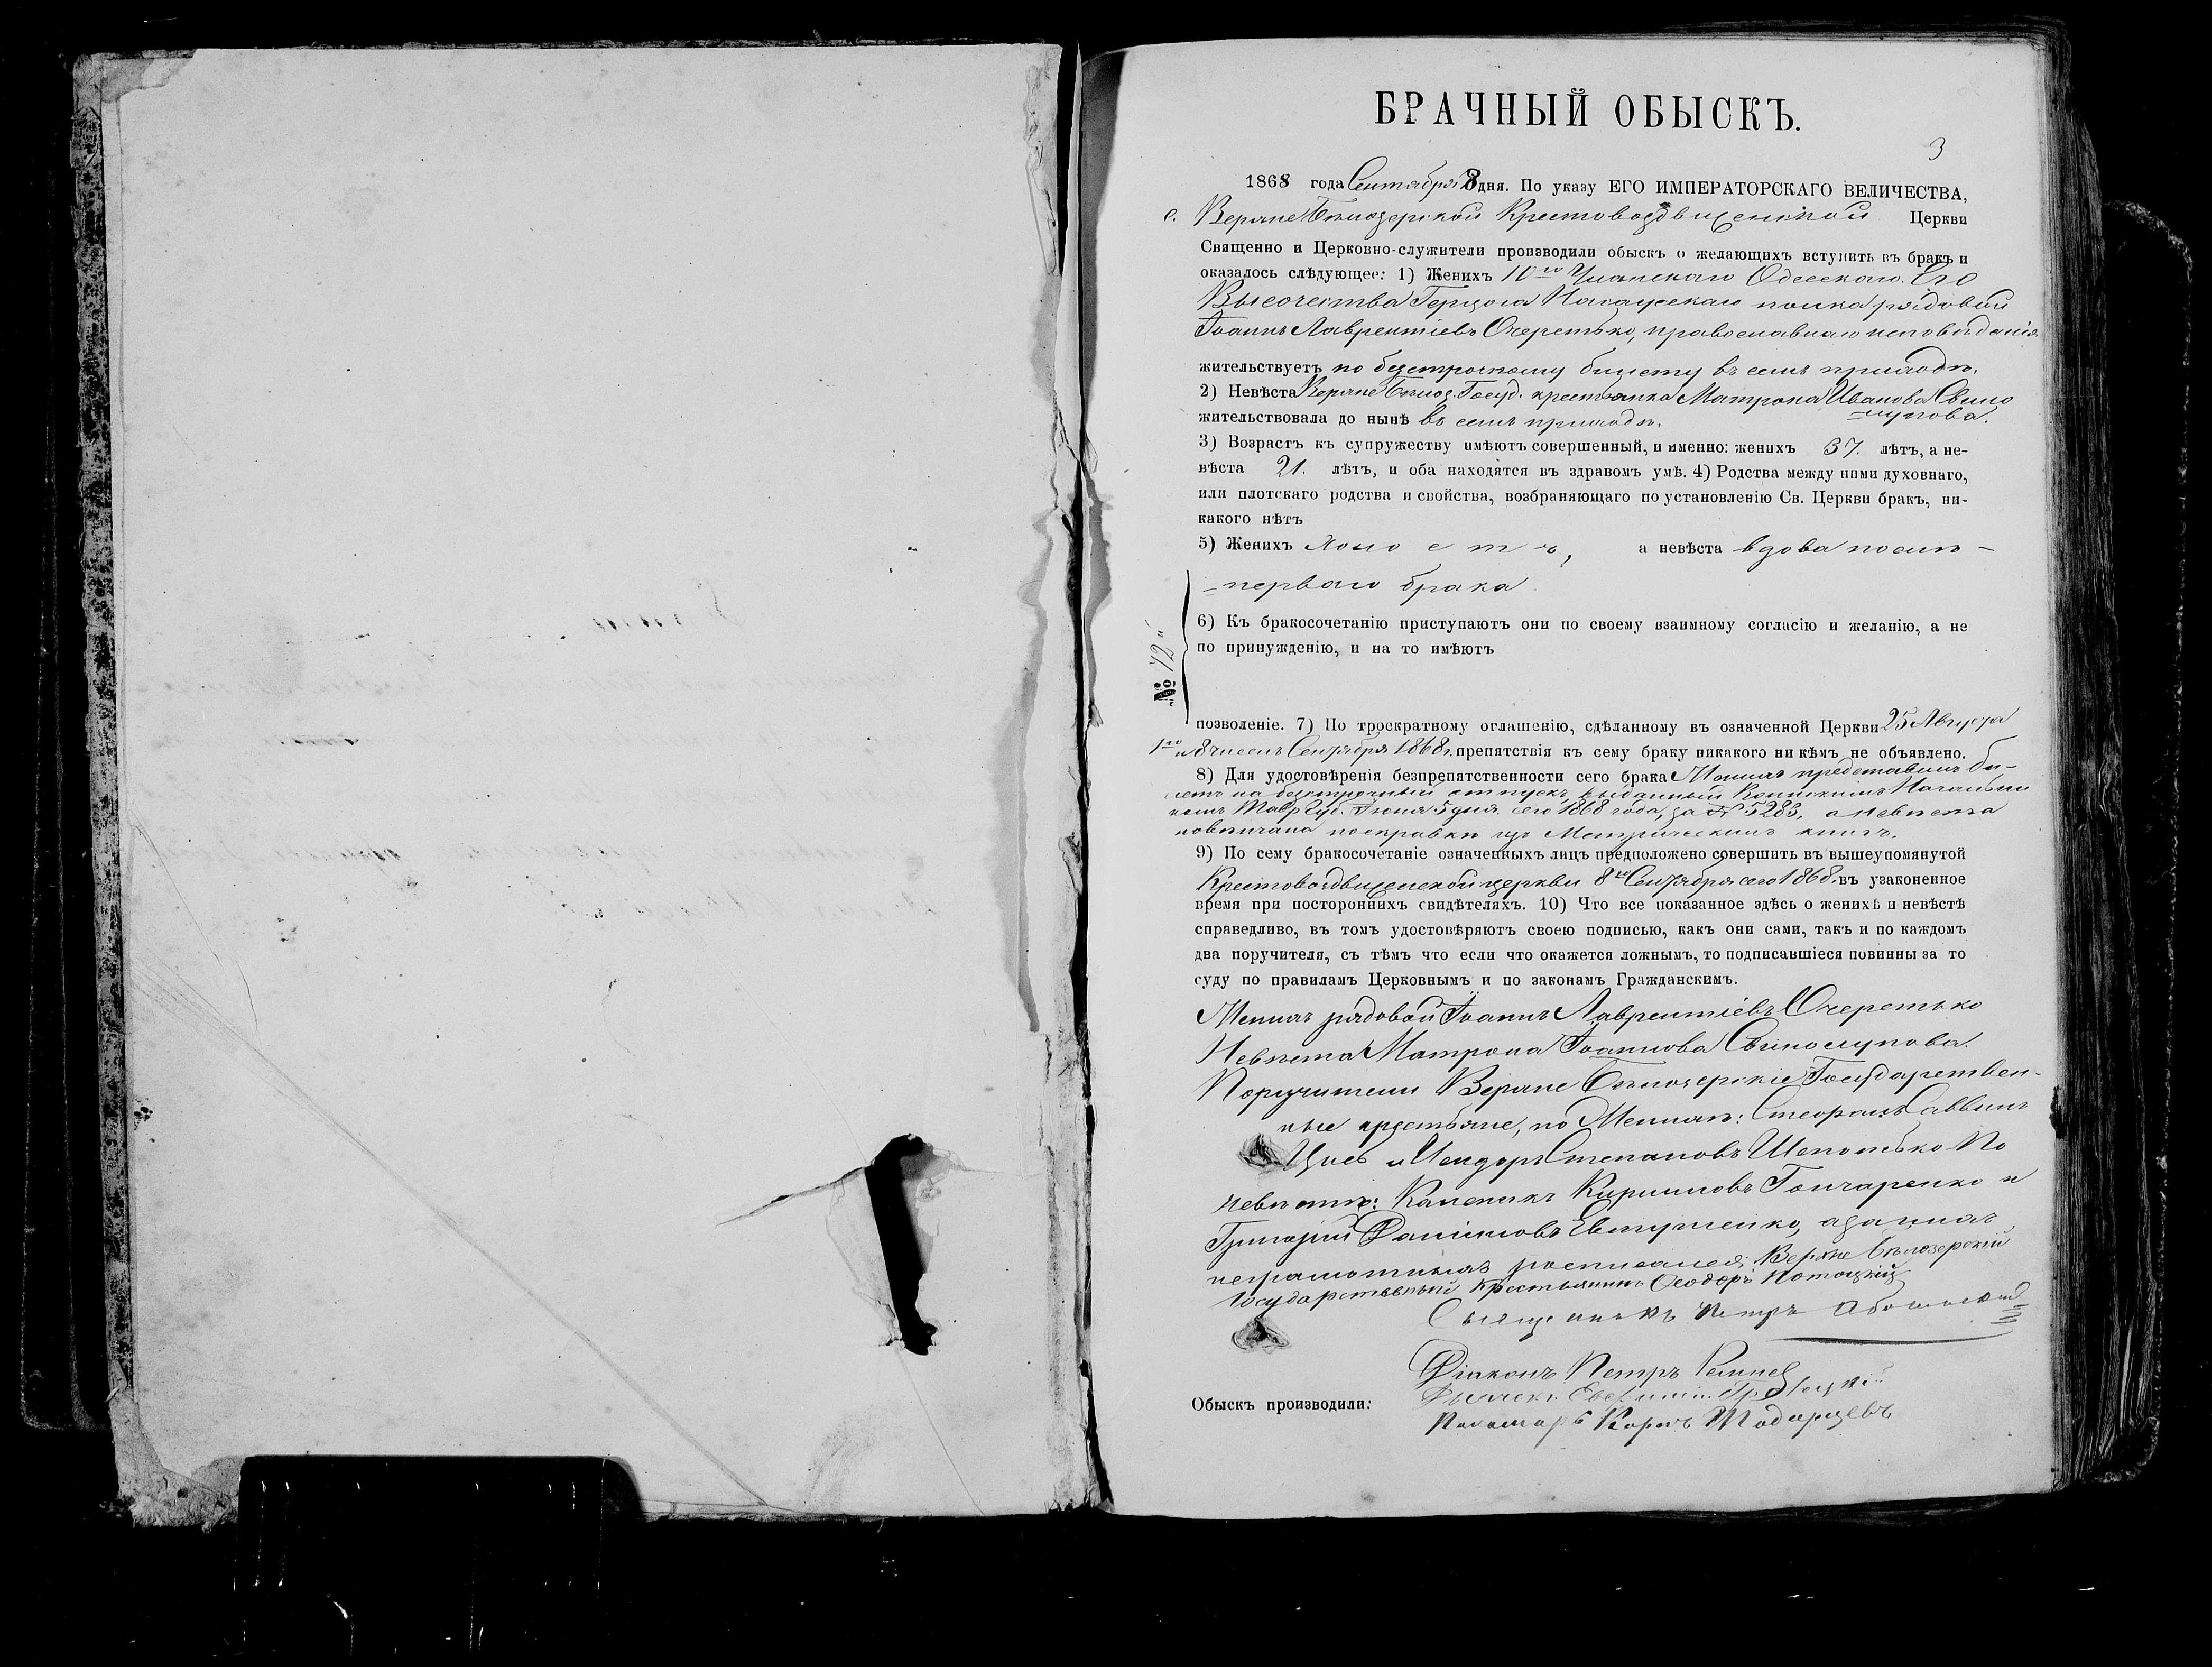 БРАЧНЫЙ ОБЫСКЪ.
3
1868 года Сентября 8 дня. По указу ЕГО ИМПЕРАТОРСКАГО ВЕЛИЧЕСТВА,
с. Верхне Бѣлозерской Крестовоздвиженской Церкви
Священно и Церковно-служители производили обыскъ о желающихъ вступить въ бракъ и
оказалось слѣдующее: 1) Женихъ 10го Уланскаго Одесскаго Его
Высочества Герцога Насаускаго полка рядовой
Іоаннъ Лаврентіевъ Очеретько, православнаго исповѣданія
жительствуетъ по безсрочному билету въ семъ приходѣ.
2) Невѣста Верхне Бѣлоз. Госуд. крестьянка Матрона Иванова Свино
лупова.
жительствовала до нынѣ въ семъ приходѣ.
3) Возрастъ къ супружеству имѣютъ совершенный, и именно: женихъ 37. лѣтъ, а не-
вѣста 21. лѣтъ, и оба находятся въ здравомъ умѣ. 4) Родства между ними духовнаго,
или плотскаго родства и свойства, возбраняющаго по установленію Св. Церкви бракъ, ни-
какого нѣтъ
5) Женихъ холостъ, а невѣста вдова послѣ-
-перваго брака
6) Къ бракосочетанію приступаютъ они по своему взаимному согласію и желанію, а не
по принужденію, и на то имѣютъ
№ 12
позволеніе. 7) По троекратному оглашенію, сдѣланному въ означенной Церкви 25 Августа
1го и 8 чиселъ Сентября 1868 г. препятствія къ сему браку никакого ни кѣмъ не объявлено.
8) Для удостовѣренія безпрепятственности сего брака Женихъ представилъ би-
летъ на безсрочный отпускъ, выданный Воинскимъ Начальни
комъ Тавр. Губ. Іюня 5 дня сего 1868 года, за № 5283, а невѣста
повѣнчана по справкѣ изъ Метрическихъ книгъ.
9) По сему бракосочетаніе означенныхъ лицъ предположено совершить въ вышеупомянутой
Крестовоздвиженской церкви 8го Сентября сего 1868 г. въ узаконенное
время при постороннихъ свидѣтеляхъ. 10) Что все показанное здѣсь о женихѣ и невѣстѣ
справедливо, въ томъ удостовѣряютъ своею подписью, какъ они сами, такъ и по каждомъ
два поручителя, съ тѣмъ что если что окажется ложнымъ, то подписавшіеся повинны за то
суду по правиламъ Церковнымъ и по законамъ Гражданскимъ.
Женихъ рядовой Іоаннъ Лаврентіевъ Очеретько
Невѣста Матрона Іоаннова Свинолупова.
Поручители Верхне Бѣлозерскіе Государствен-
ные крестьяне, по Женихѣ: Стефанъ Саввинъ
и Исидоръ Степановъ Шепотько По
невѣстѣ: Каленикъ Кирилловъ Гончаренко и
Григорій Даніиловъ Евтушенко, а за нихъ
неграмотныхъ росписался: Верхне Бѣлозерскій
Государственный Крестьянинъ Ѳеодоръ Потоцкій
Священникъ Петръ
Діаконъ Петръ
Обыскъ производили:
Пономарь Карпъ